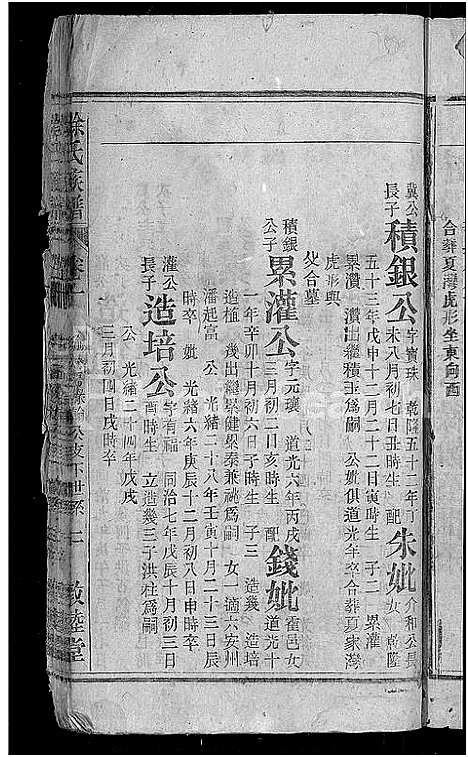 合葬夏灣虎形坐東向酉
冀公長子積銀公字寶珠 乾隆五十二年丁未八月初七日丑時生 配朱妣介和公長女 乾隆
五十三年戊申十二月二十二日寅時生 子二 累灌
累瓚 瓚出繼積玉爲嗣 公妣俱道光年卒合葬夏家灣
虎形與
父合墓
積銀公子累灌公字元瓖 道光六年丙戌三月初二日亥時生 配錢妣霍邑女 道光十
一年辛卯十月初六日子時生 子三 造幾 造培
造植 幾出繼累健累泰兼祧爲嗣 女一適六安州
潘起富 公 光緒二十八年壬寅十月二十三日辰
時卒 妣 光緒六年庚辰十二月初八日申時卒
灌公長子造培公字有福 同治七年戊辰十月初三日酉時生 立造幾三子洪柱爲嗣
公 光緒二十四年戊戌
三月初四日戌時卒
徐氏族譜 卷一 公支下世系 敦睦堂